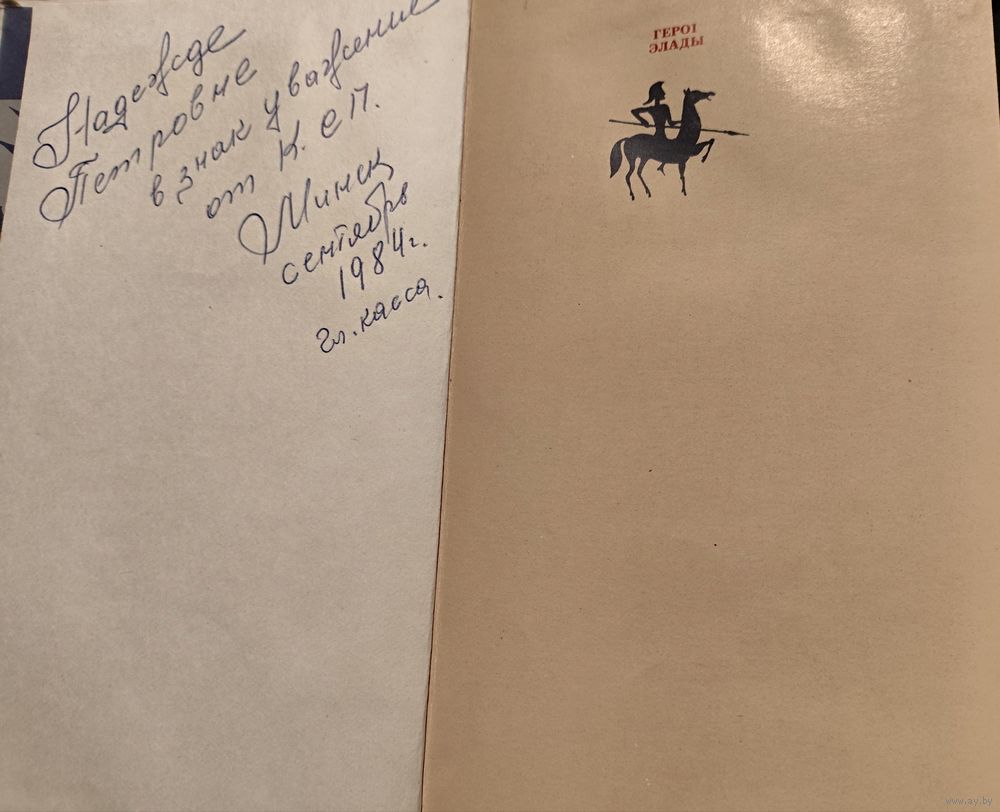 Надежде
Петровне
в знак уважение
от К. е П.
Минск
сентябрь
1984 г.
Гл. касса.
ГЕРОІ
ЭЛАДЫ
www.ay.by